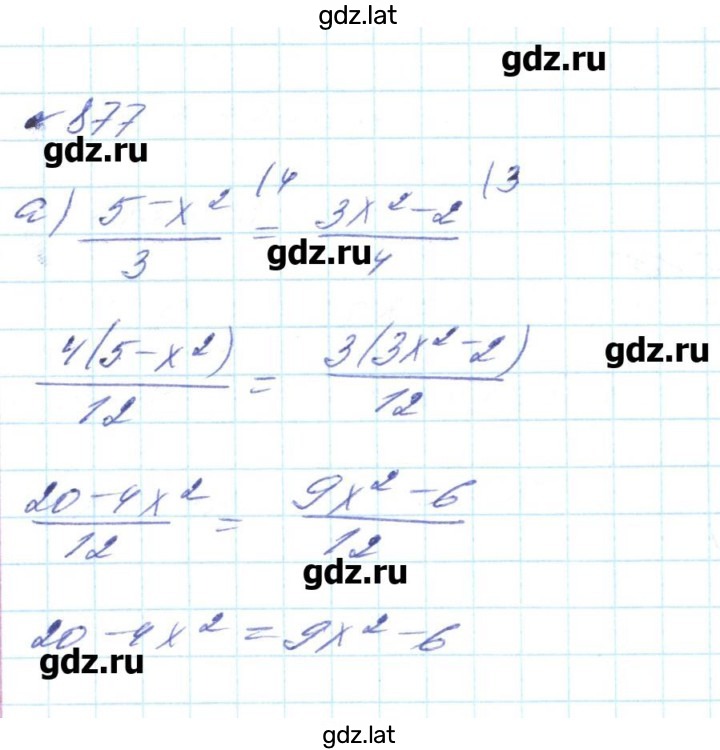 gdz.lat
gdz.ru
№ 877
gdz.ru
а) (5-x²)/3 (4 = (3x²-2)/4 (3
gdz.ru
4(5-x²)/12 = 3(3x²-2)/12
gdz.ru
(20-4x²)/12 = (9x²-6)/12
gdz.ru
20-4x² = 9x²-6
gdz.ru
gdz.lat